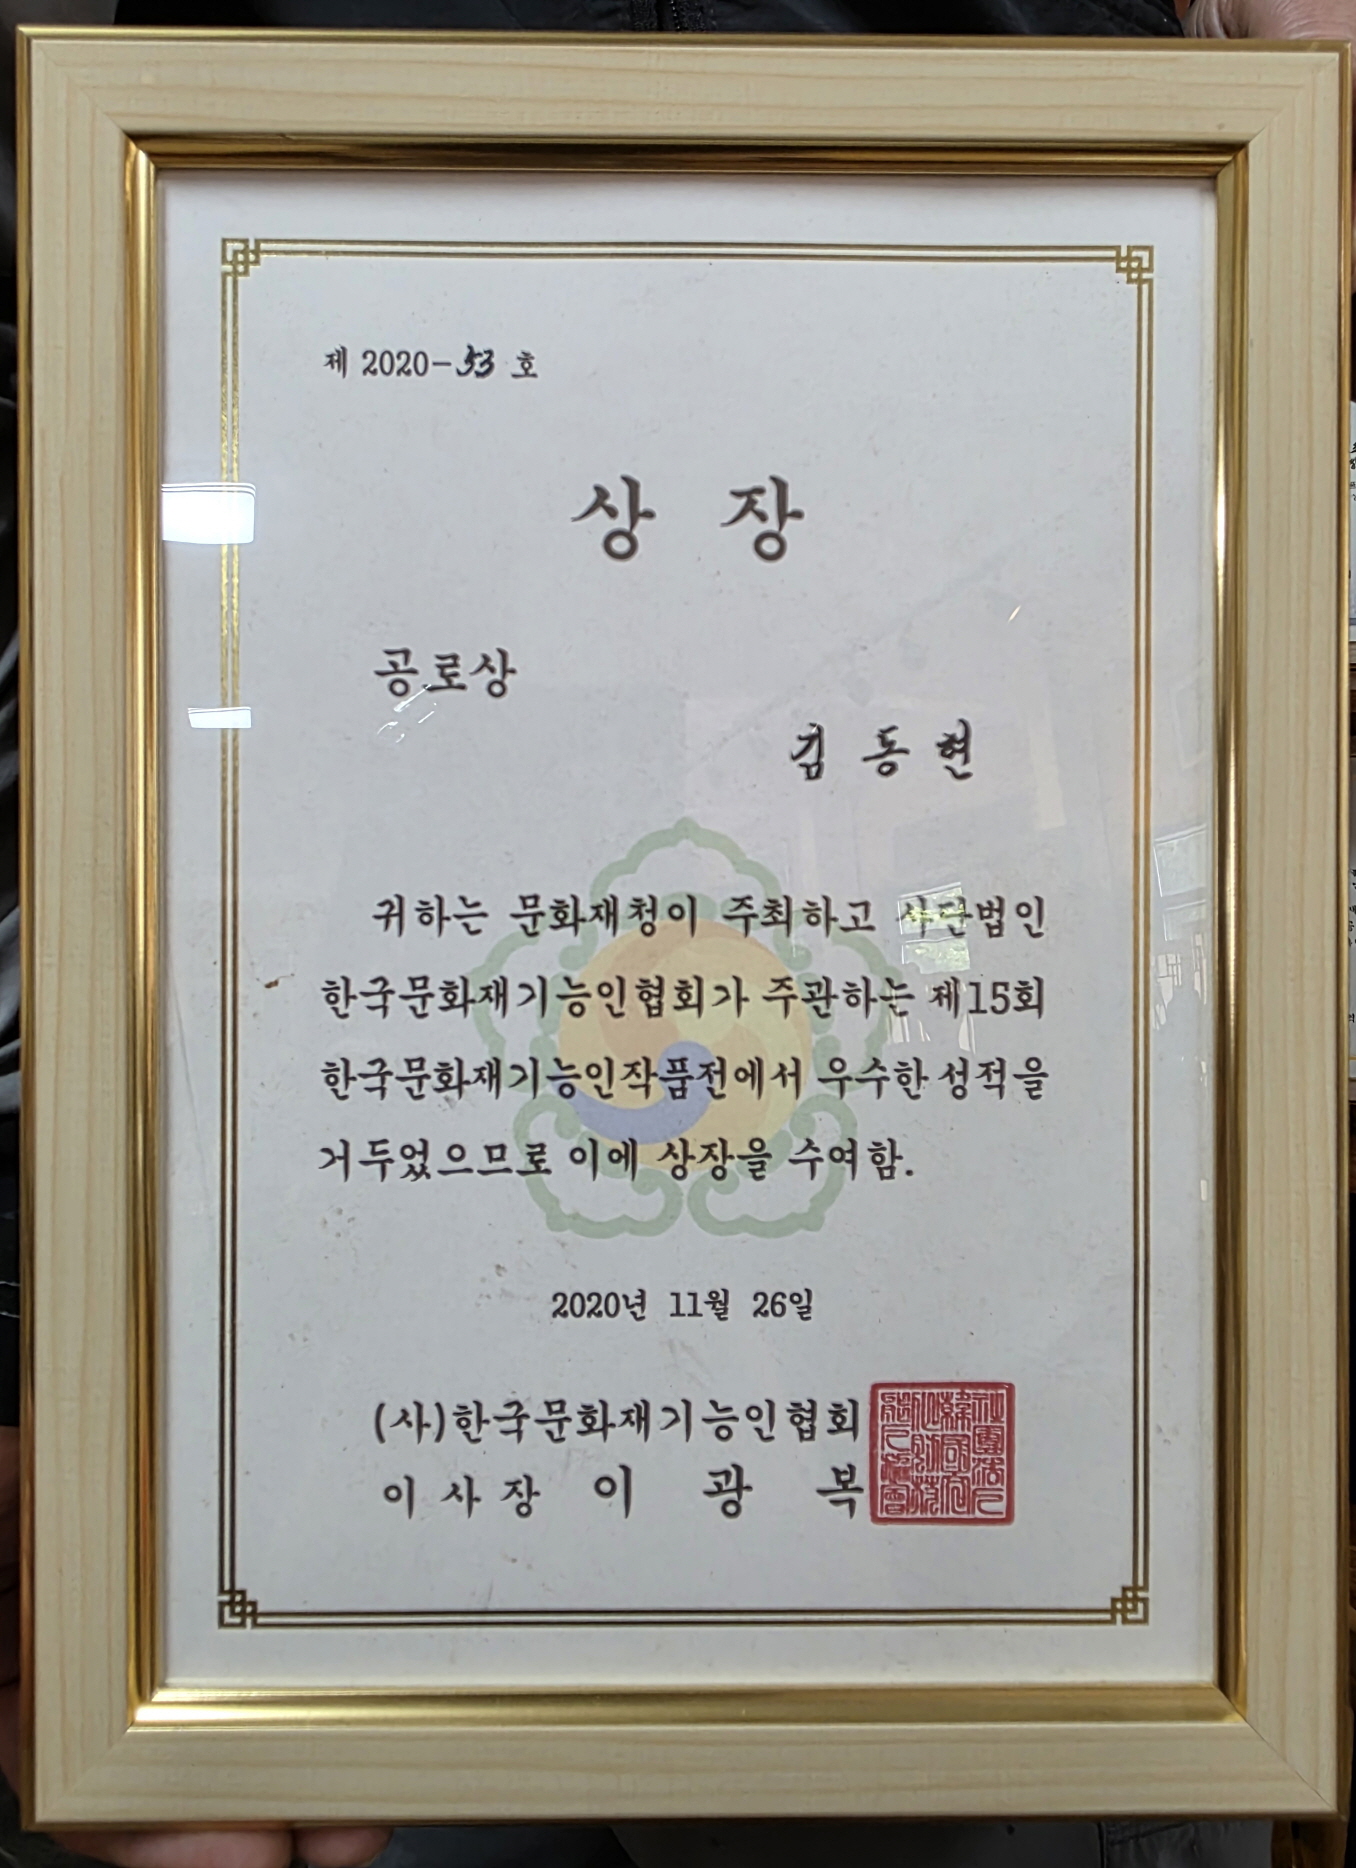 제 2020-53 호
상 장
공로상
김 동 현
귀하는 문화재청이 주최하고 사단법인
한국문화재기능인협회가 주관하는 제15회
한국문화재기능인작품전에서 우수한 성적을
거두었으므로 이에 상장을 수여함.
2020년 11월 26일
(사)한국문화재기능인협회
이 사 장 이 광 복